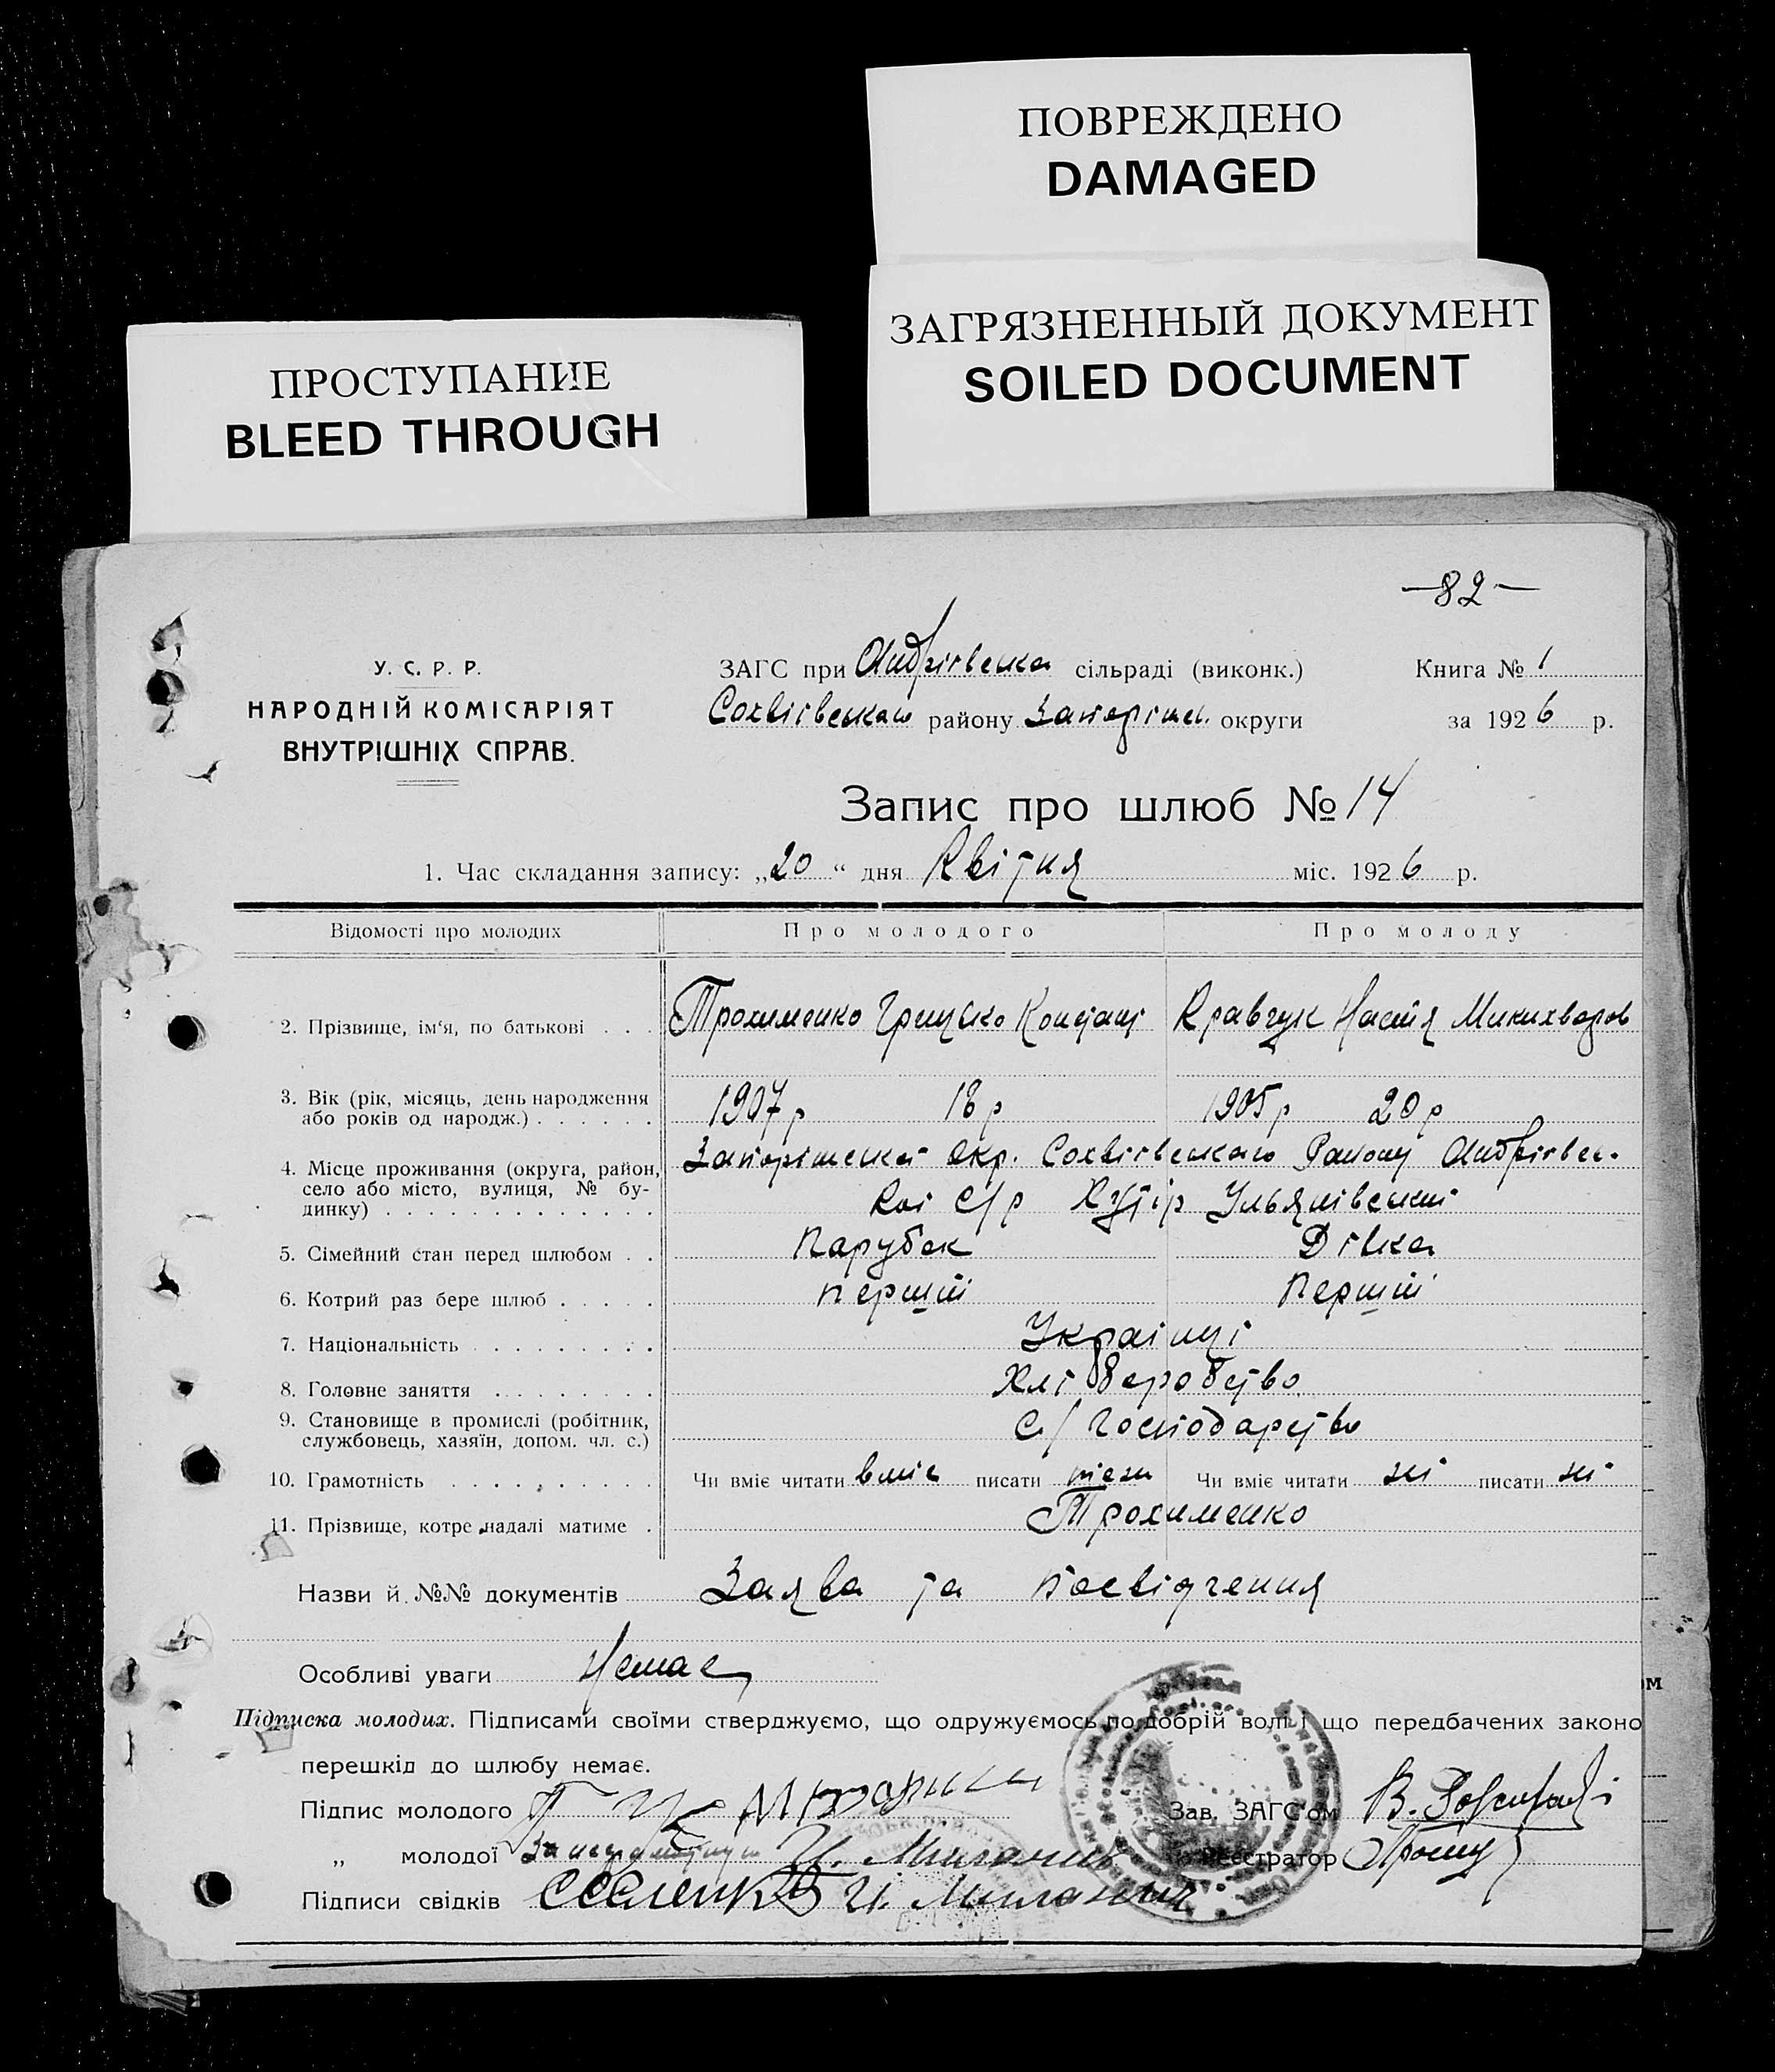 ПОВРЕЖДЕНО
DAMAGED
ЗАГРЯЗНЕННЫЙ ДОКУМЕНТ
SOILED DOCUMENT
ПРОСТУПАНИЕ
BLEED THROUGH
—82—
У. С. Р. Р.
НАРОДНІЙ КОМІСАРІЯТ
ВНУТРІШНІХ СПРАВ.
ЗАГС при Андріівська сільраді (виконк.) Книга № 1
Софіівського району Запоріжсь. округи за 1926 р.
Запис про шлюб № 14
1. Час складання запису: „20“ дня Квітня міс. 1926 р.
Відомості про молодих Про молодого Про молоду
2. Прізвище, ім'я, по батькові . . . Трохименко Грицько Констант Кравчук Настя Микихваров
3. Вік (рік, місяць, день народження 1907 р 18 р 1905 р 20 р
або років од народж.) . . . . . .
4. Місце проживання (округа, район, Запоріжська окр. Сохвіівського Району Андріівсь-
село або місто, вулиця, № бу- коі с/р Хутір Ульянівський
динку) . . . . . . . . . . . . .
5. Сімейний стан перед шлюбом . . Парубок Дівка
6. Котрий раз бере шлюб . . . . . перший Перший
7. Національність . . . . . . . . . Украінці
8. Головне заняття . . . . . . . . Хліборобство
9. Становище в промислі (робітник, С/Господарство
службовець, хазяїн, допом. чл. с.)
10. Грамотність . . . . . . . . . . Чи вміє читати вміє писати теж Чи вміє читати ні писати ні
11. Прізвище, котре надалі матиме . Трохименко
Назви й №№ документів Заява та посвідчення
Особливі уваги Немає
Підписка молодих. Підписами своїми стверджуємо, що одружуємось по добрій волі і що передбачених законо
перешкід до шлюбу немає.
Підпис молодого
Зав. ЗАГС'ом В.
„ молодої За неграмотную И.
Реєстратор
Підписи свідків И.